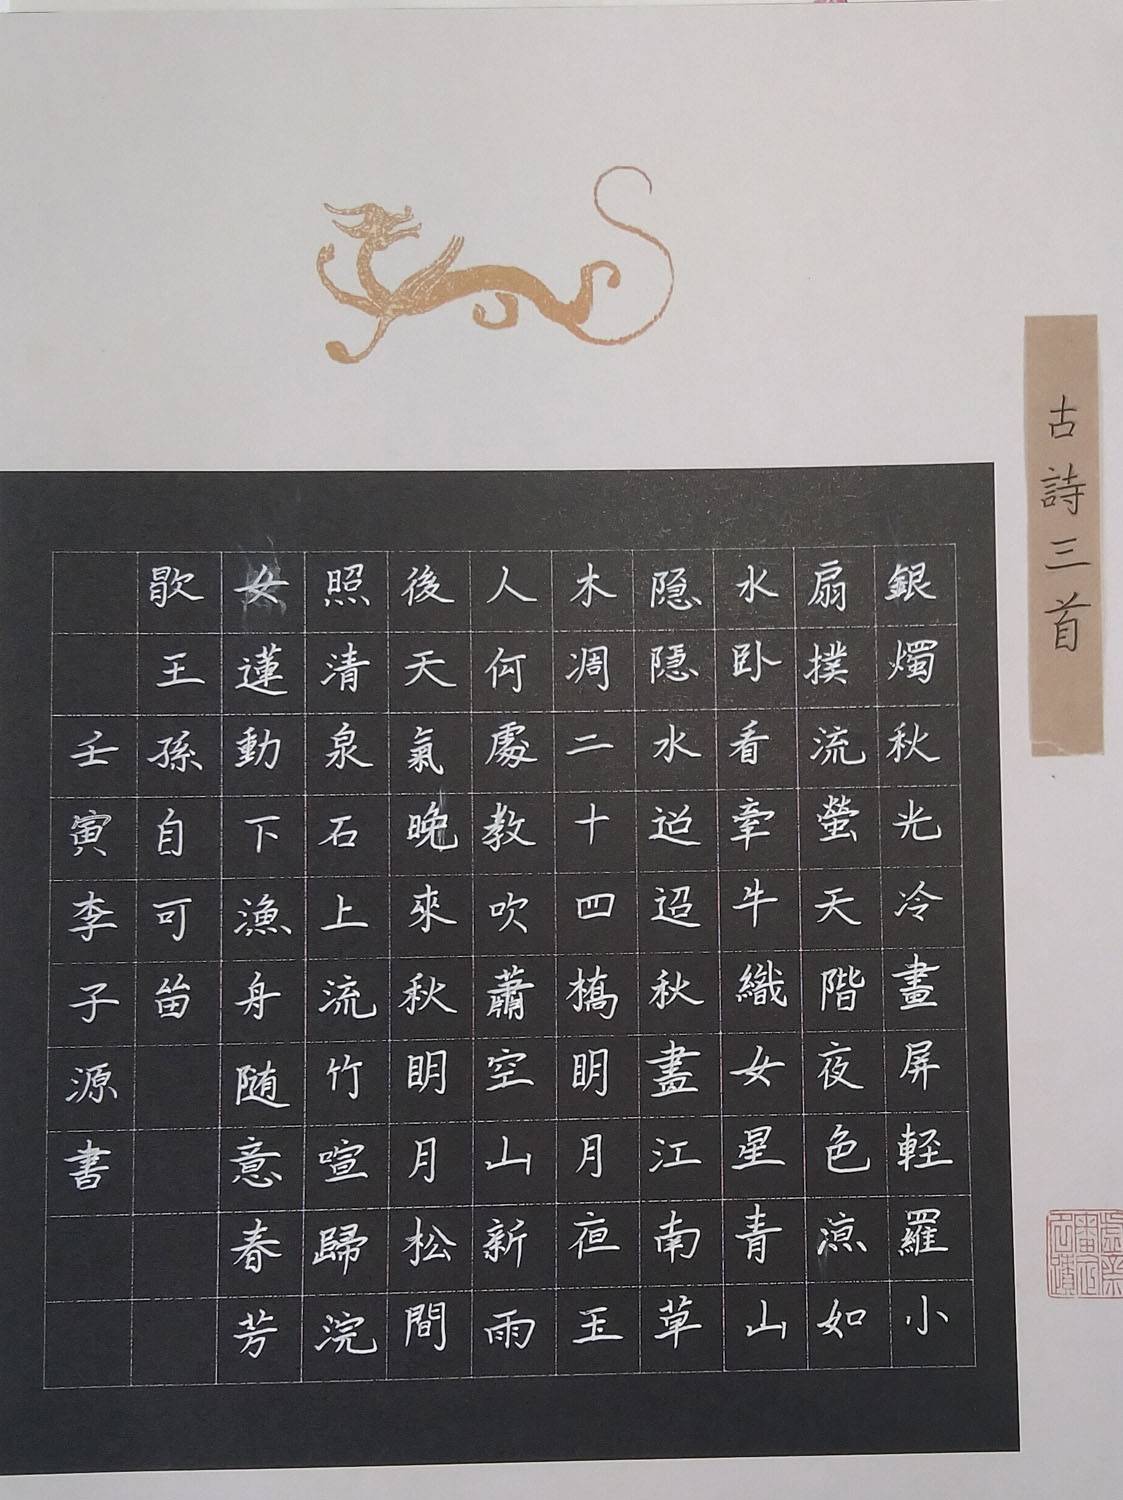 古詩三首
銀燭秋光冷畫屏輕羅小
扇撲流螢天階夜色涼如
水卧看牽牛織女星青山
隐隱水迢迢秋盡江南草
木凋二十四橋明月夜玉
人何處教吹蕭空山新雨
後天氣晚來秋明月松間
照清泉石上流竹喧歸浣
女蓮動下漁舟随意春芳
歇王孫自可留
壬寅李子源書